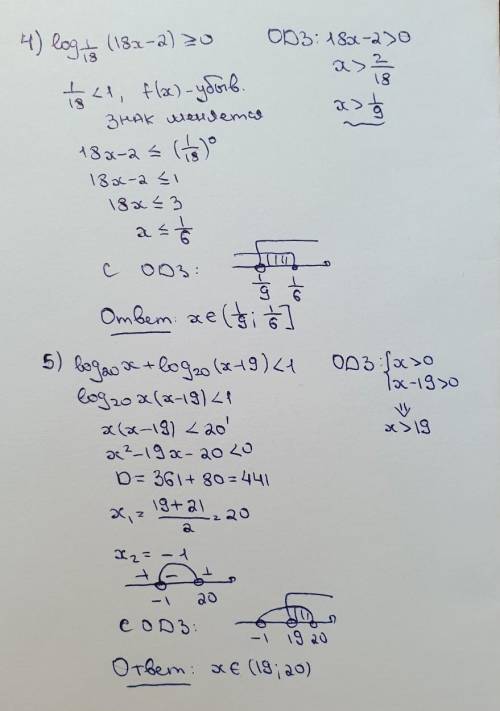 4) log_{1/18} (18x-2) ≥ 0   ОДЗ: 18x-2>0
x > 2/18
1/18 < 1, f(x) - убыв.   x > 1/9
знак меняется
18x-2 ≤ (1/18)^0
18x-2 ≤ 1
18x ≤ 3
x ≤ 1/6
С ОДЗ:   1/9   1/6
Ответ: x∈(1/9; 1/6]
5) log_{20} x + log_{20} (x-19) < 1   ОДЗ: { x>0
log_{20} x(x-19) < 1   x-19>0
⇓
x(x-19) < 20^1   x>19
x²-19x-20<0
D = 361+80=441
x₁ = (19+21)/2 = 20
x₂ = -1
+ - +
-1   20
С ОДЗ:   -1   19 20
Ответ: x∈(19; 20)